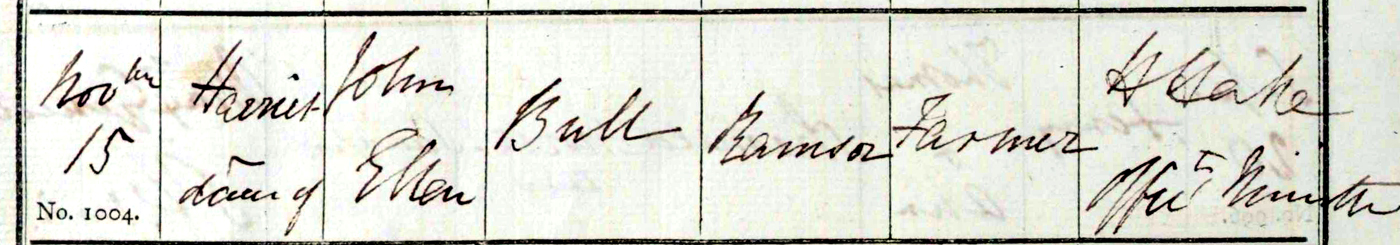 Nov br
15
No. 1004.
Harriet
daur of
John
Ellen
Bull
Ramsor
Farmer
H Hake
Offict Minister